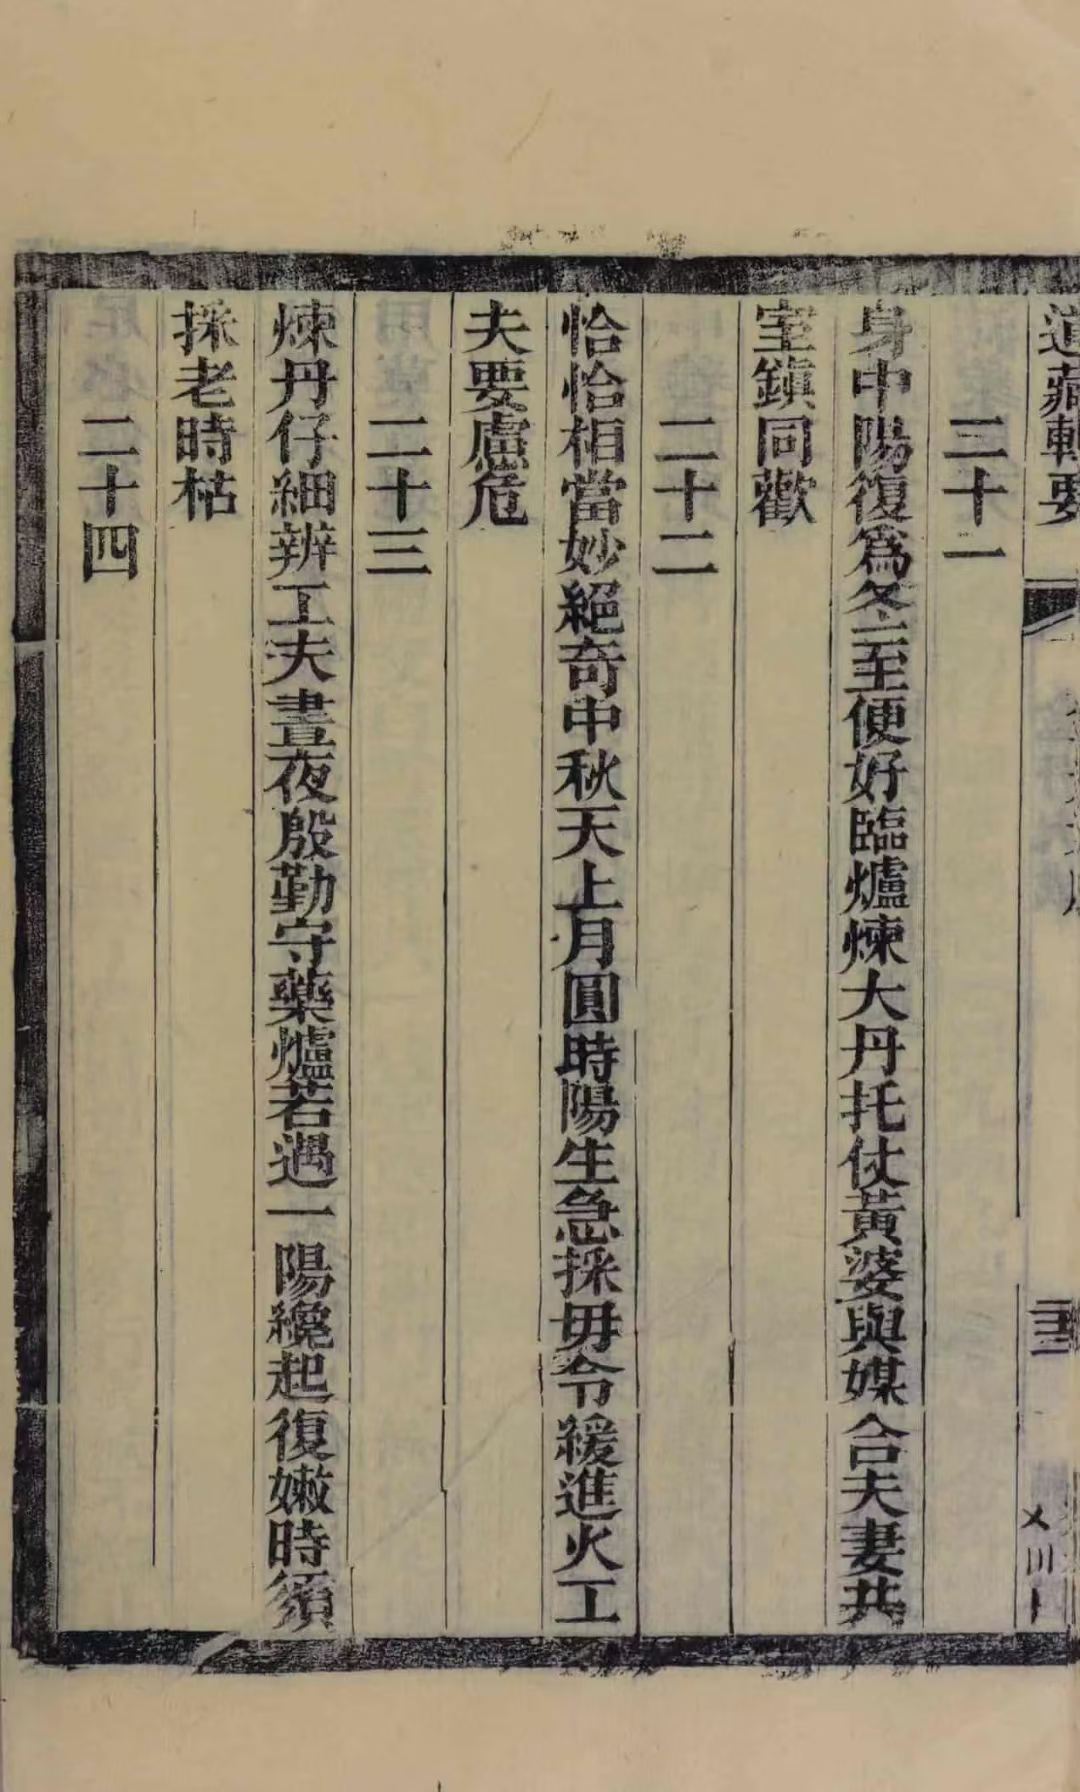 道藏輯要
二十一
身中陽復爲冬至便好臨爐煉大丹托仗黃婆與媒合夫妻共
室鎮同歡
二十二
恰恰相當妙絕奇中秋天上月圓時陽生急採毋令緩進火工
夫要慮危
二十三
煉丹仔細辨工夫晝夜殷勤守藥爐若遇一陽纔起復嫩時須
採老時枯
二十四